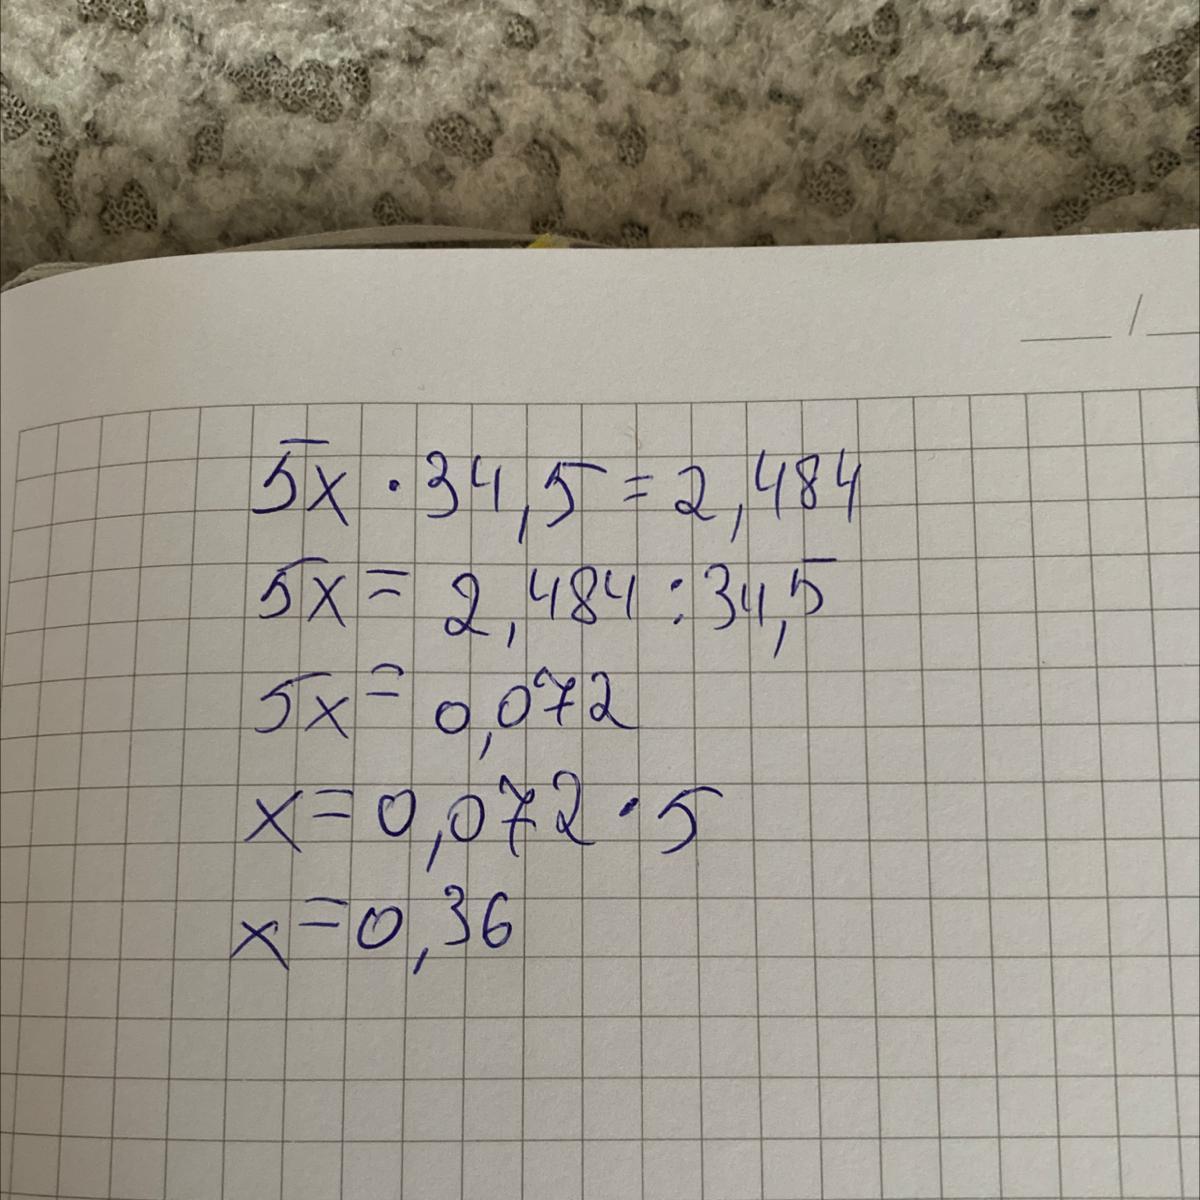 5x · 34,5 = 2,484
5x = 2,484 : 34,5
5x = 0,072
x = 0,072 · 5
x = 0,36